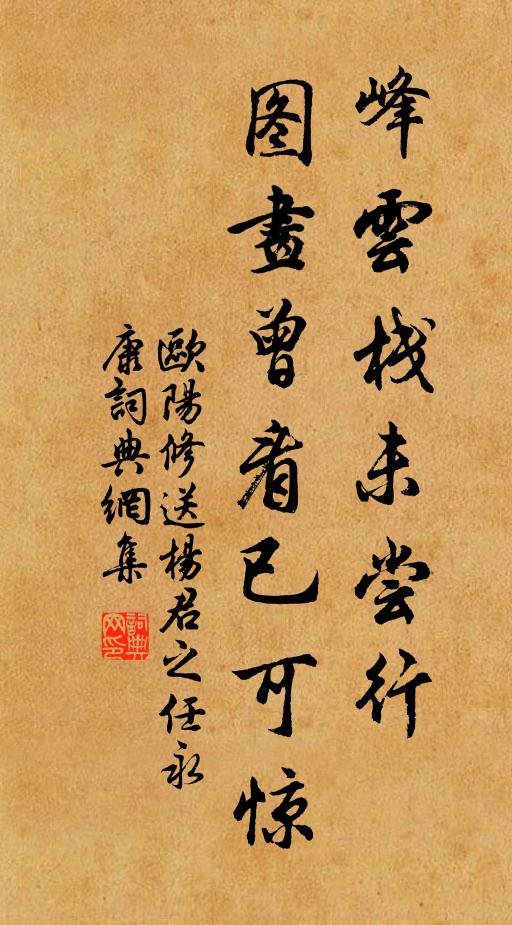 峰雲栈未尝行
图畫曾看已可惊
歐陽修送楊君之任永
康詞典網集
詞典
网印